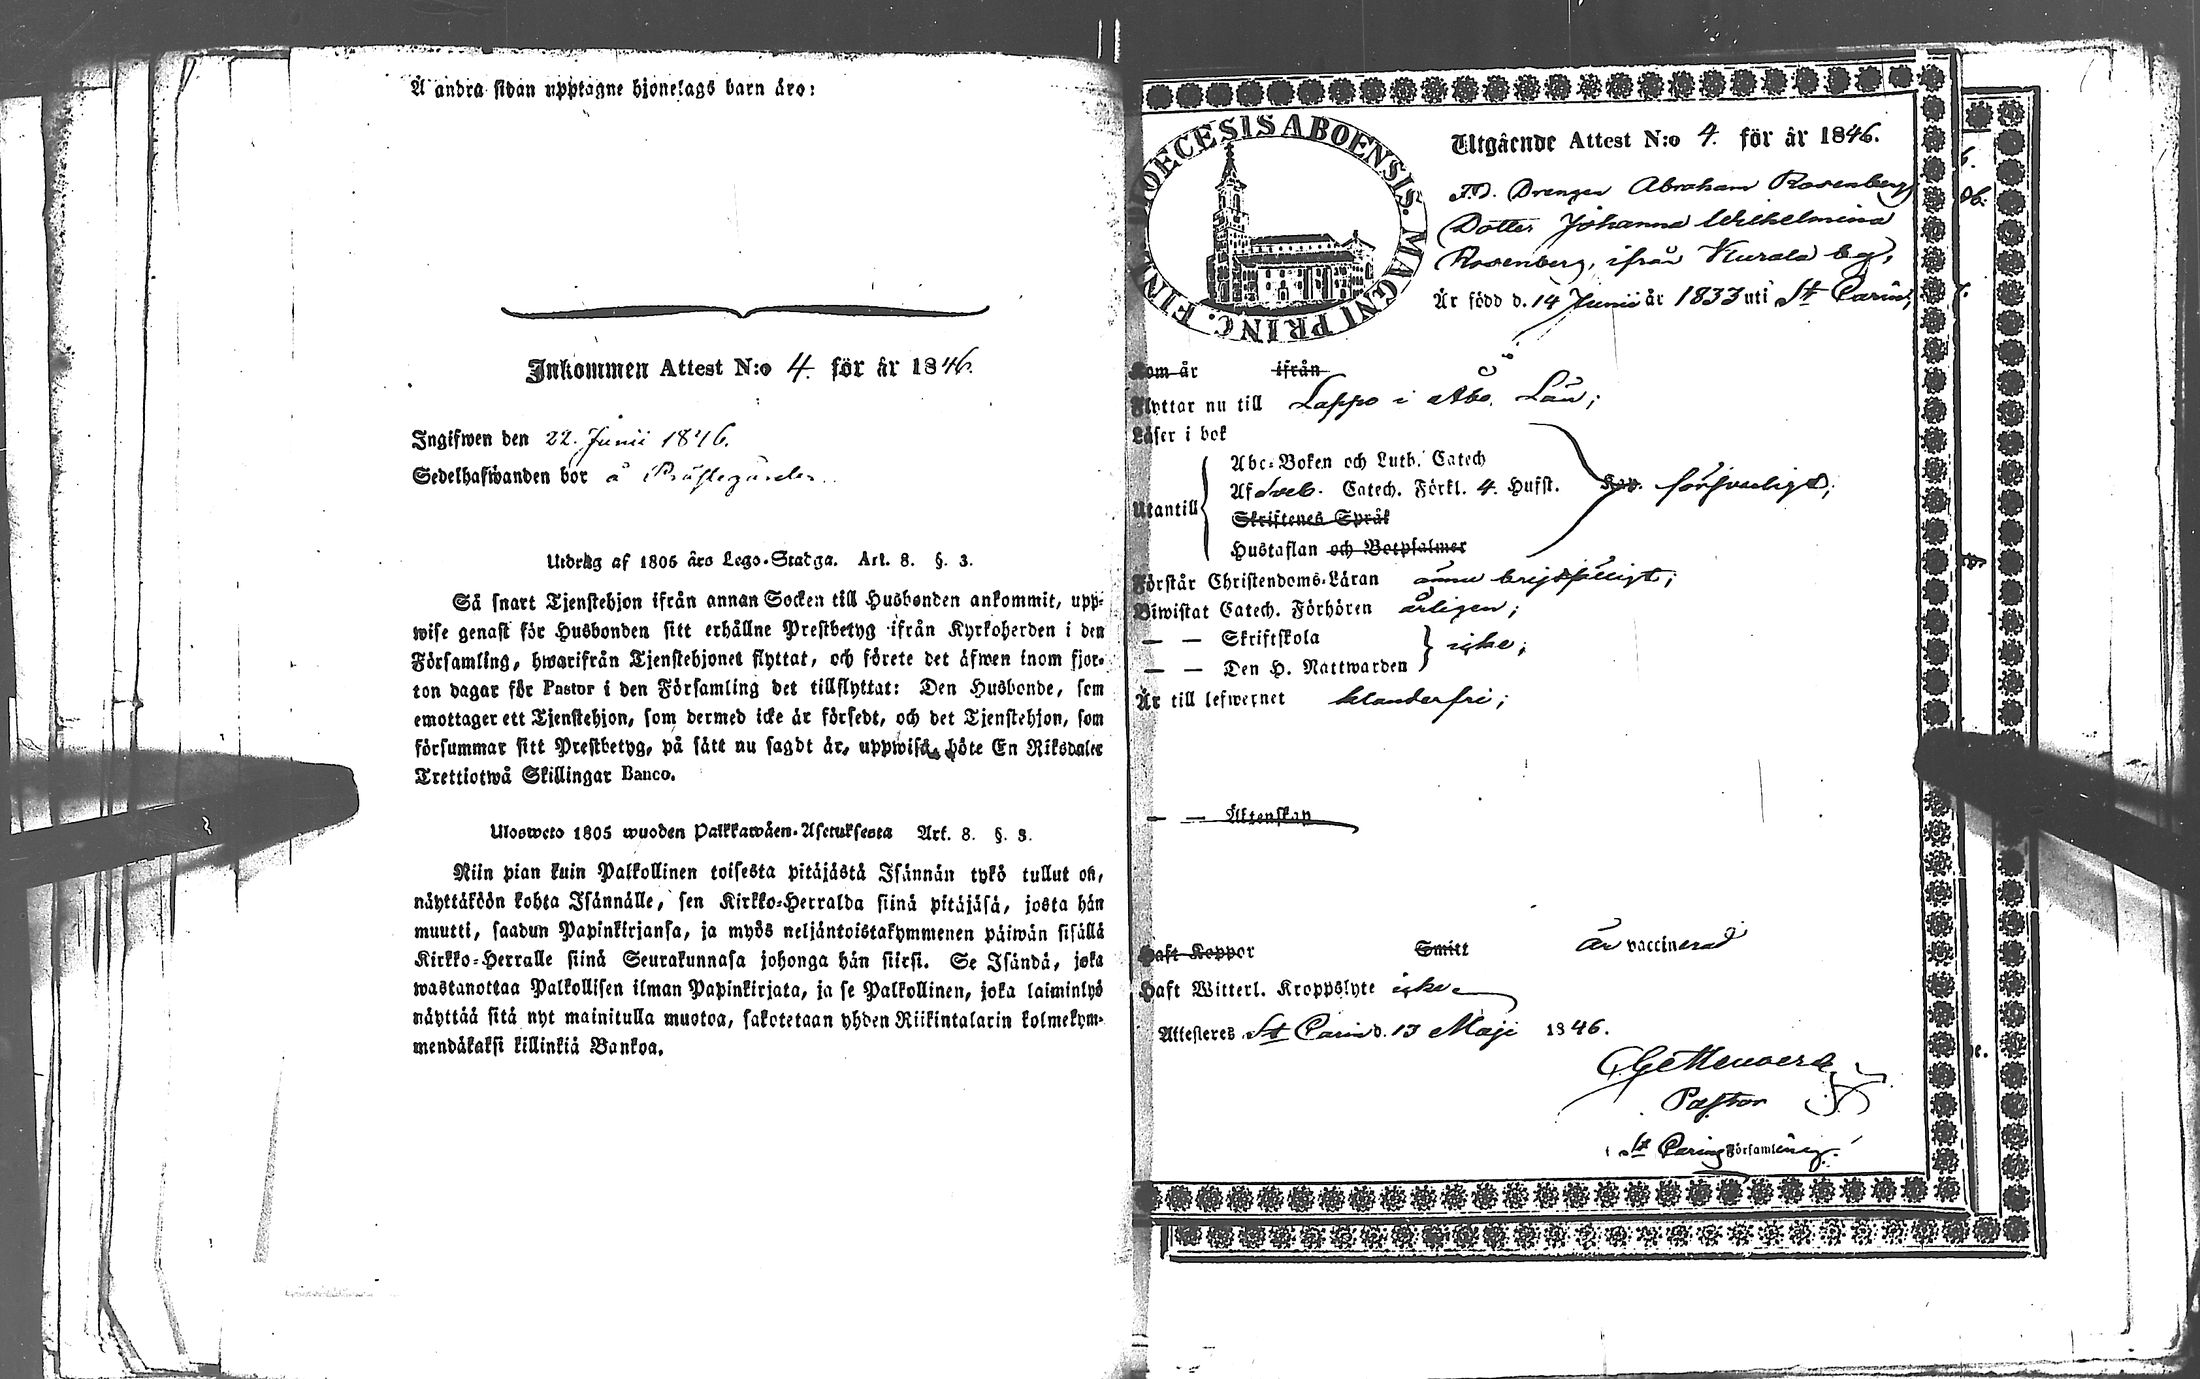 Å andra sidan upptagne hjonelags barn äro:
Inkommen Attest N:o 4. för år 1846.
Ingifwen den 22. Junii 1846.
Sedelhafwanden bor å Prästegården.
Utdrag af 1805 års Lego-Stadga. Art. 8. §. 3.
Så snart Tjenstehjon ifrån annan Socken till Husbonden ankommit, upp-
wise genast för Husbonden sitt erhållne Prestbetyg ifrån Kyrkoherden i den
Församling, hwarifrån Tjenstehjonet flyttat, och förete det äfwen inom fjor-
ton dagar för Pastor i den Församling det tillflyttat: Den Husbonde, som
emottager ett Tjenstehjon, som dermed icke är försedt, och det Tjenstehjon, som
försummar sitt Prestbetyg, på sätt nu sagdt är, uppwisa, böte En Riksdaler
Trettiotwå Skillingar Banco.
Ulosweto 1805 wuoden Palkkawäen-Asetuksesta Art. 8. §. 3.
Niin pian kuin Palkollinen toisesta pitäjästä Isännän tykö tullut on,
näyttäköön kohta Isännälle, sen Kirkko-Herralda siinä pitäjäsä, josta hän
muutti, saadun Papinkirjansa, ja myös neljäntoistakymmenen päiwän sisällä
Kirkko-Herralle siinä Seurakunnasa johonga hän siirsi. Se Isändä, joka
wastanottaa Palkollisen ilman Papinkirjata, ja se Palkollinen, joka laiminlyö
näyttää sitä nyt mainitulla muotoa, sakotetaan yhden Riikintalarin kolmekym-
mendäkaksi killinkiä Bankoa.
DIOECESIS ABOENSIS. MAGNI PRINC. FINL.
Utgående Attest N:o 4. för år 1846.
F.d. Drengen Abraham Rosenberg
Dotter Johanna Wilhelmina
Rosenberg, ifrån Kurala by,
Är född d. 14 Junii år 1833 uti St Carins,
Kom år ifrån
Flyttar nu till Lappo i Åbo Län;
Läser i bok
Abc-Boken och Luth. Catech
Utantill Af Sveb. Catech. Förkl. 4. Hufst. försvarligt;
Skriftenes Språk
Hustaflan och Botpsalmer
Förstår Christendoms-Läran ännu bristfälligt;
Biwistat Catech. Förhören årligen;
— — Skriftskola icke;
— — Den H. Nattwarden
Är till lefwernet klanderfri;
— — Äktenskap
Haft Koppor Smitt är vaccinerad
Haft Witterl. Kroppslyte icke
Attesteres St Carins d. 13 Maji 1846.
Pastor
i St Carins Församling.